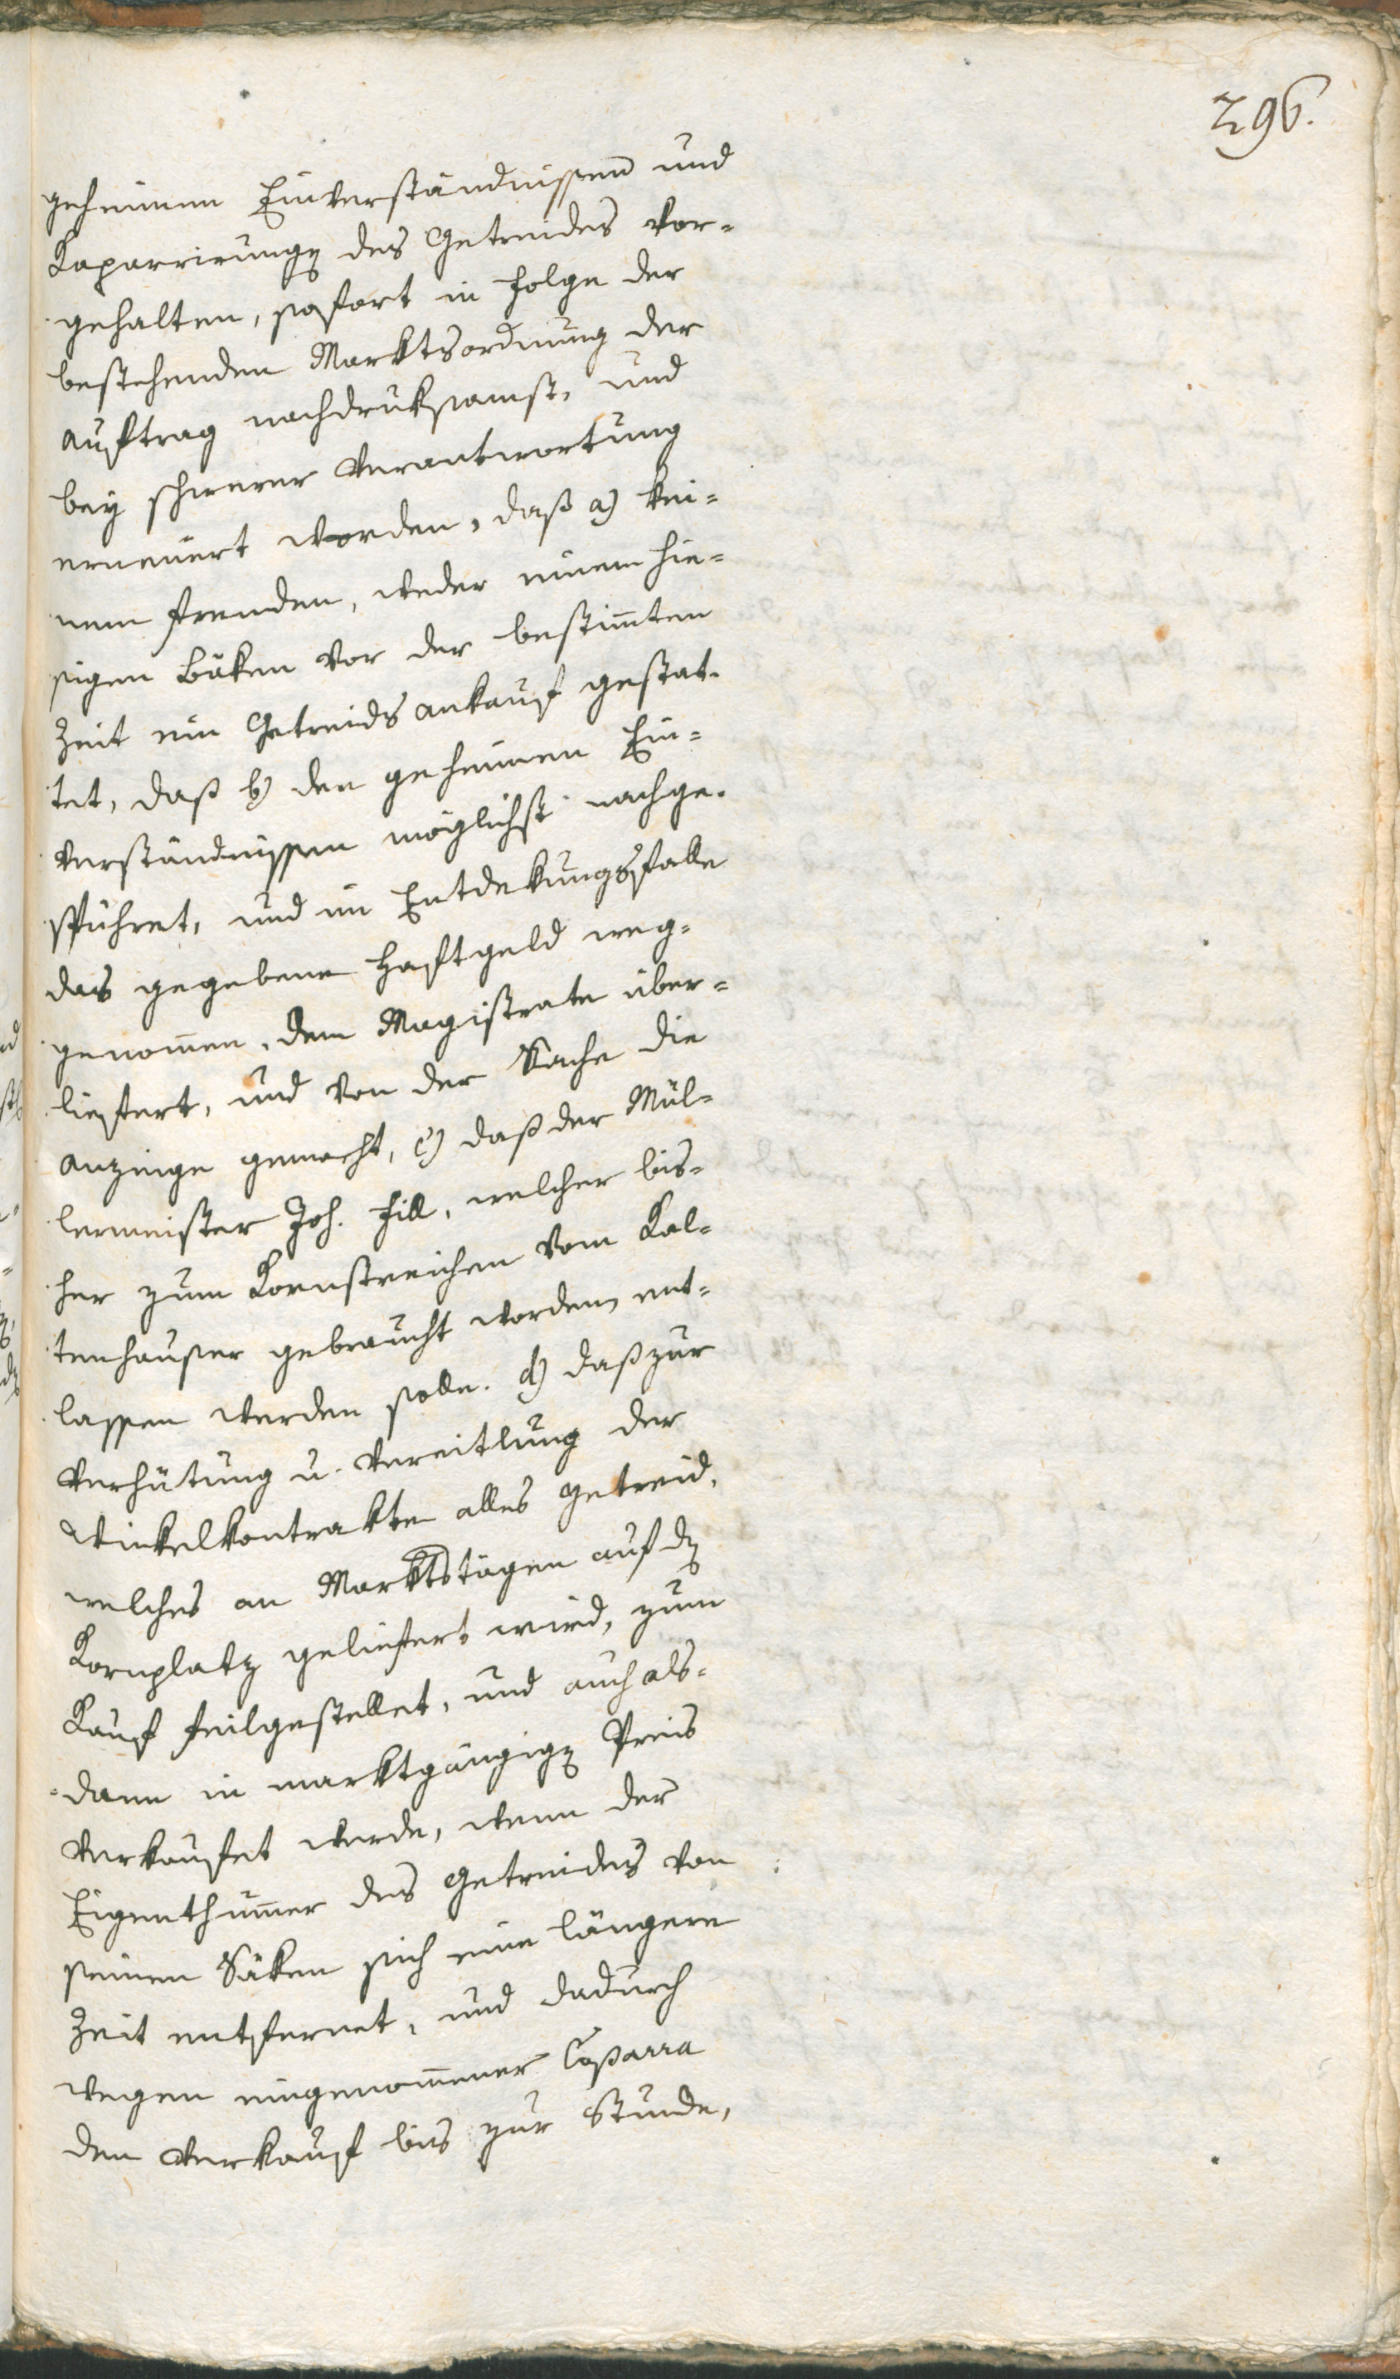 296.
geheimen Einverständnissen und
Kaparrirung des Getreides vor-
gehalten, sofort in Folge der
bestehenden Marktsordnung der
Auftrag nachdruksamst, und
bey schwerer Verantwortung
erneuert worden, daß a) kei-
nem fremden, weder einem hie-
sigen Bäken vor der bestim̅ten
Zeit ein Getreids ankauf gestat-
tet, daß b) den geheimen Ein-
verständnissen möglichst nachge-
spühret, und im Entdekungsfalle
das gegebene Haftgeld weg-
genom̅en, dem Magistrate über-
liefert, und von der Sache die
Anzeige gemacht, c) daß der Mül-
lermeister Joh. Fill, welcher bis-
her zum Kornstreichen vom Kal-
tenhauser gebraucht worden, ent-
lassen werden solle. d) daß zur
Verhütung u. Vereitlung der
Winkelkontrakte alles Getreid,
welches an Marktstägen auf dem
Kornplatz geliefert wird, zum
Kauf feilgestellet, und auch als-
dann in marktgängigen Preis
verkaufet werde, wenn der
Eigenthüm̅er des Getreides von
seinen Säken sich eine längere
Zeit entfernet, und dadurch
wegen eingenom̅ener Caparra
den Verkauf bis zur Stunde,